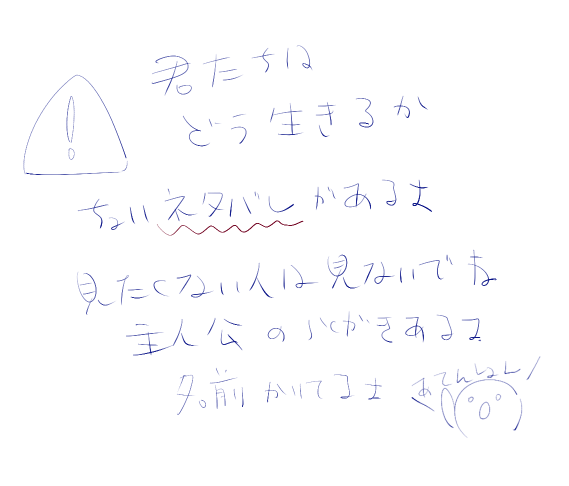 !
君たちは
どう生きるか
ちょいネタバレがあるよ
見たくない人は見ないでね
主人公のらくがきあるよ
名前かいてるよ
あてんしょん!